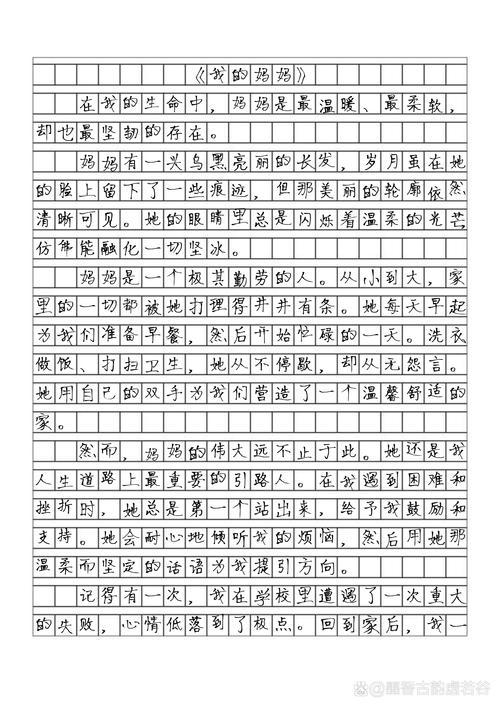 《我的妈妈》
在我的生命中，妈妈是最温暖、最柔软，
却也最坚韧的存在。
妈妈有一头乌黑亮丽的长发，岁月虽在她
的脸上留下了一些痕迹，但那美丽的轮廓依然
清晰可见。她的眼睛里总是闪烁着温柔的光芒，
仿佛能融化一切坚冰。
妈妈是一个极其勤劳的人。从小到大，家
里的一切都被她打理得井井有条。她每天早起
为我们准备早餐，然后开始忙碌的一天。洗衣
做饭、打扫卫生，她从不停歇，却从无怨言。
她用自己的双手为我们营造了一个温馨舒适的
家。
然而，妈妈的伟大远不止于此。她还是我
人生道路上最重要的引路人。在我遇到困难和
挫折时，她总是第一个站出来，给予我鼓励和
支持。她会耐心地倾听我的烦恼，然后用她那
温柔而坚定的话语为我提引方向。
记得有一次，我在学校里遭遇了一次重大
的失败，心情低落到了极点。回到家后，我一